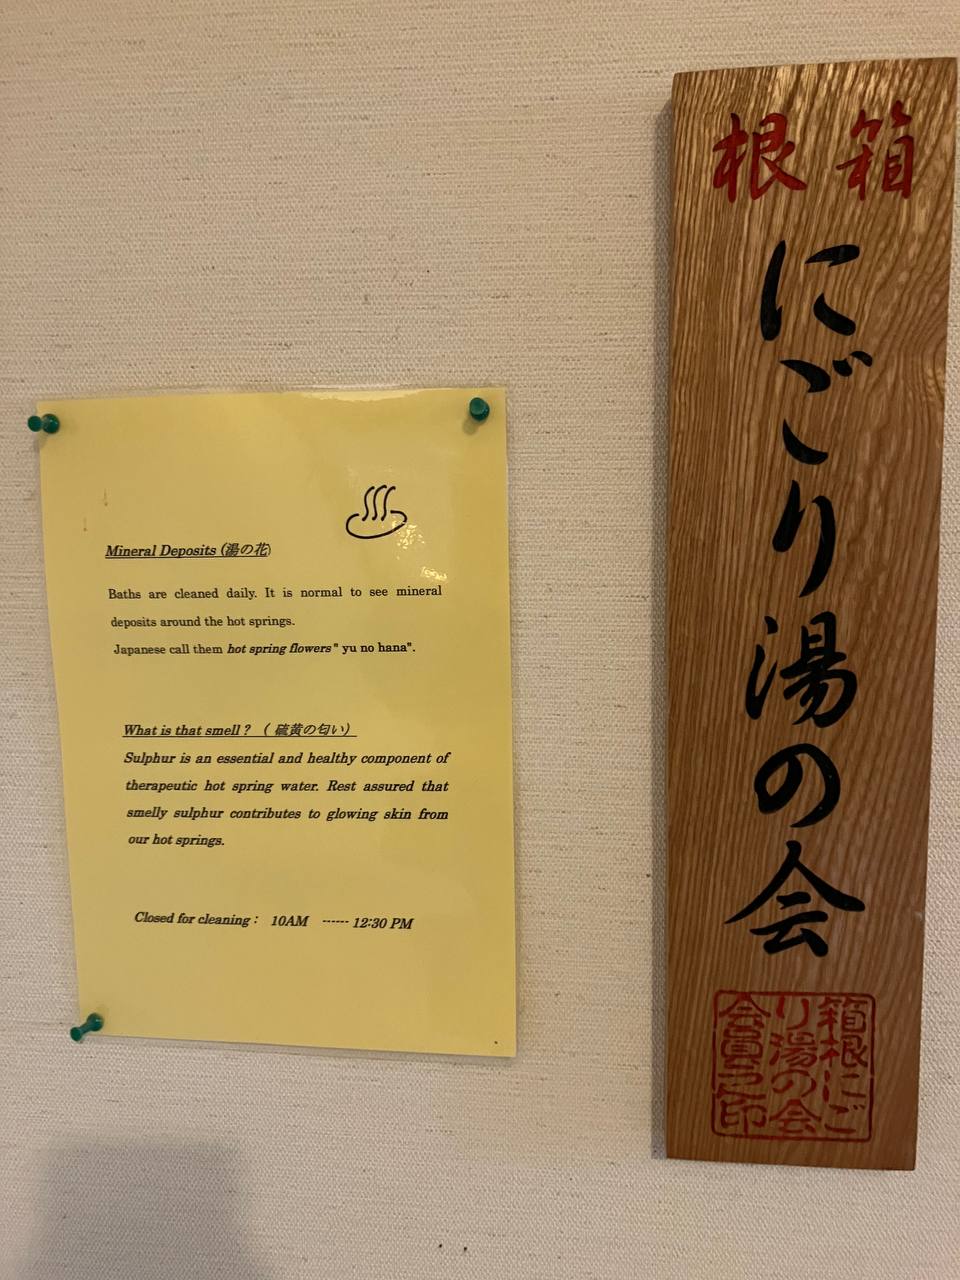 Mineral Deposits (湯の花)
Baths are cleaned daily. It is normal to see mineral
deposits around the hot springs.
Japanese call them hot spring flowers " yu no hana".
What is that smell ? ( 硫黄の匂い)
Sulphur is an essential and healthy component of
therapeutic hot spring water. Rest assured that
smelly sulphur contributes to glowing skin from
our hot springs.
Closed for cleaning : 10AM ------ 12:30 PM
箱根
にごり湯の会
箱根にご
り湯の会
会員之印